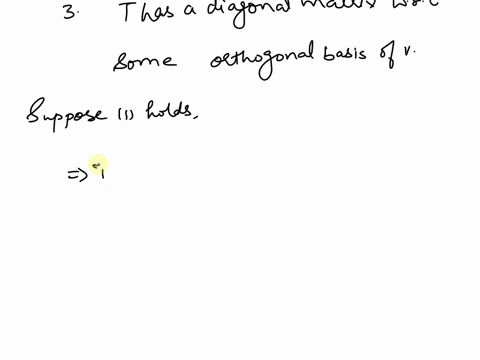 3. T has a diagonal matrix w.r.t
some orthogonal basis of V.
Suppose (1) holds,
=>